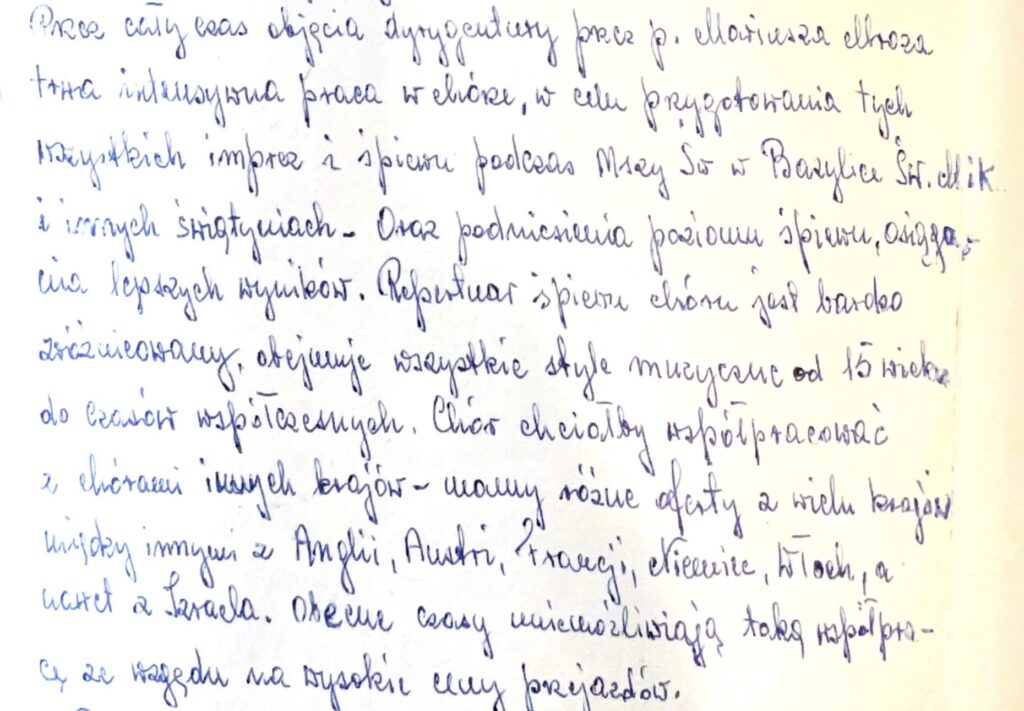 Przez cały czas objęcia dyrygentury przez p. Mariusza Mroza
trwa intensywna praca w chórze, w celu przygotowania tych
wszystkich imprez i śpiewu podczas Mszy Św w Bazylice Św. Mik
i innych świątyniach - Oraz podniesienia poziomu śpiewu, osiąga-
nia lepszych wyników. Repertuar śpiewu chóru jest bardzo
zróżnicowany, obejmuje wszystkie style muzyczne od 15 wieku
do czasów współczesnych. Chór chciałby współpracować
z chórami innych krajów - mamy różne oferty z wielu krajów
między innymi z Anglii, Austri, Francji, Niemiec, Włoch, a
nawet z Izraela. Obecne czasy uniemożliwiają taką współpra-
cę ze względu na wysokie ceny przejazdów.